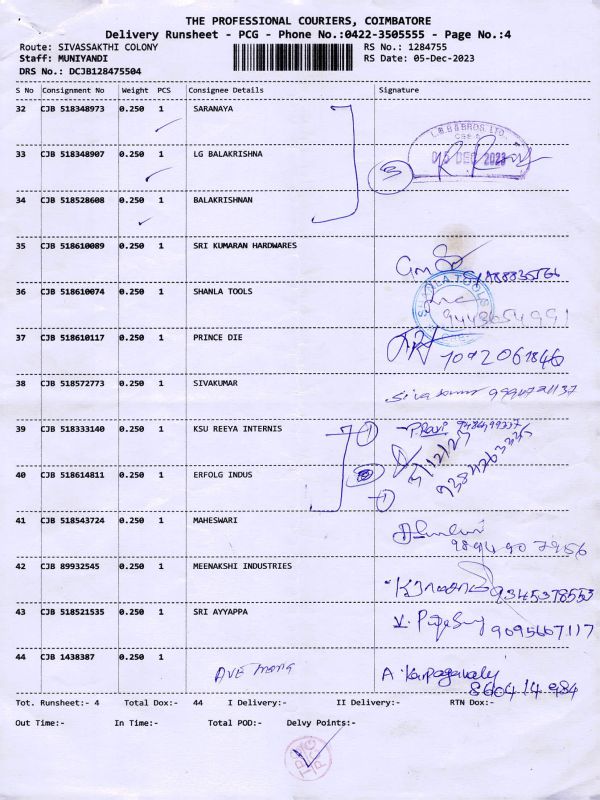 THE PROFESSIONAL COURIERS, COIMBATORE
Delivery Runsheet - PCG - Phone No.:0422-3505555 - Page No.:4
Route: SIVASSAKTHI COLONY RS No.: 1284755
Staff: MUNIYANDI RS Date: 05-Dec-2023
DRS No.: DCJB128475504
S No Consignment No Weight PCS Consignee Details Signature
32 CJB 518348973 0.250 1 SARANAYA
L.G.B & BROS. LTD.
33 CJB 518348907 0.250 1 LG BALAKRISHNA 3 DEC 2023
34 CJB 518528608 0.250 1 BALAKRISHNAN
35 CJB 518610089 0.250 1 SRI KUMARAN HARDWARES
36 CJB 518610074 0.250 1 SHANLA TOOLS 9443654991
37 CJB 518610117 0.250 1 PRINCE DIE 7092061846
38 CJB 518572773 0.250 1 SIVAKUMAR
39 CJB 518333140 0.250 1 KSU REEYA INTERNIS 1 P.Ravi
40 CJB 518614811 0.250 1 ERFOLG INDUS 1
41 CJB 518543724 0.250 1 MAHESWARI
9894907956
42 CJB 89932545 0.250 1 MEENAKSHI INDUSTRIES 9345378553
43 CJB 518521535 0.250 1 SRI AYYAPPA 9095667117
44 CJB 1438387 0.250 1 A. Karpagavaly
860414984
Tot. Runsheet:- 4 Total Dox:- 44 I Delivery:- II Delivery:- RTN Dox:-
Out Time:- In Time:- Total POD:- Delvy Points:-